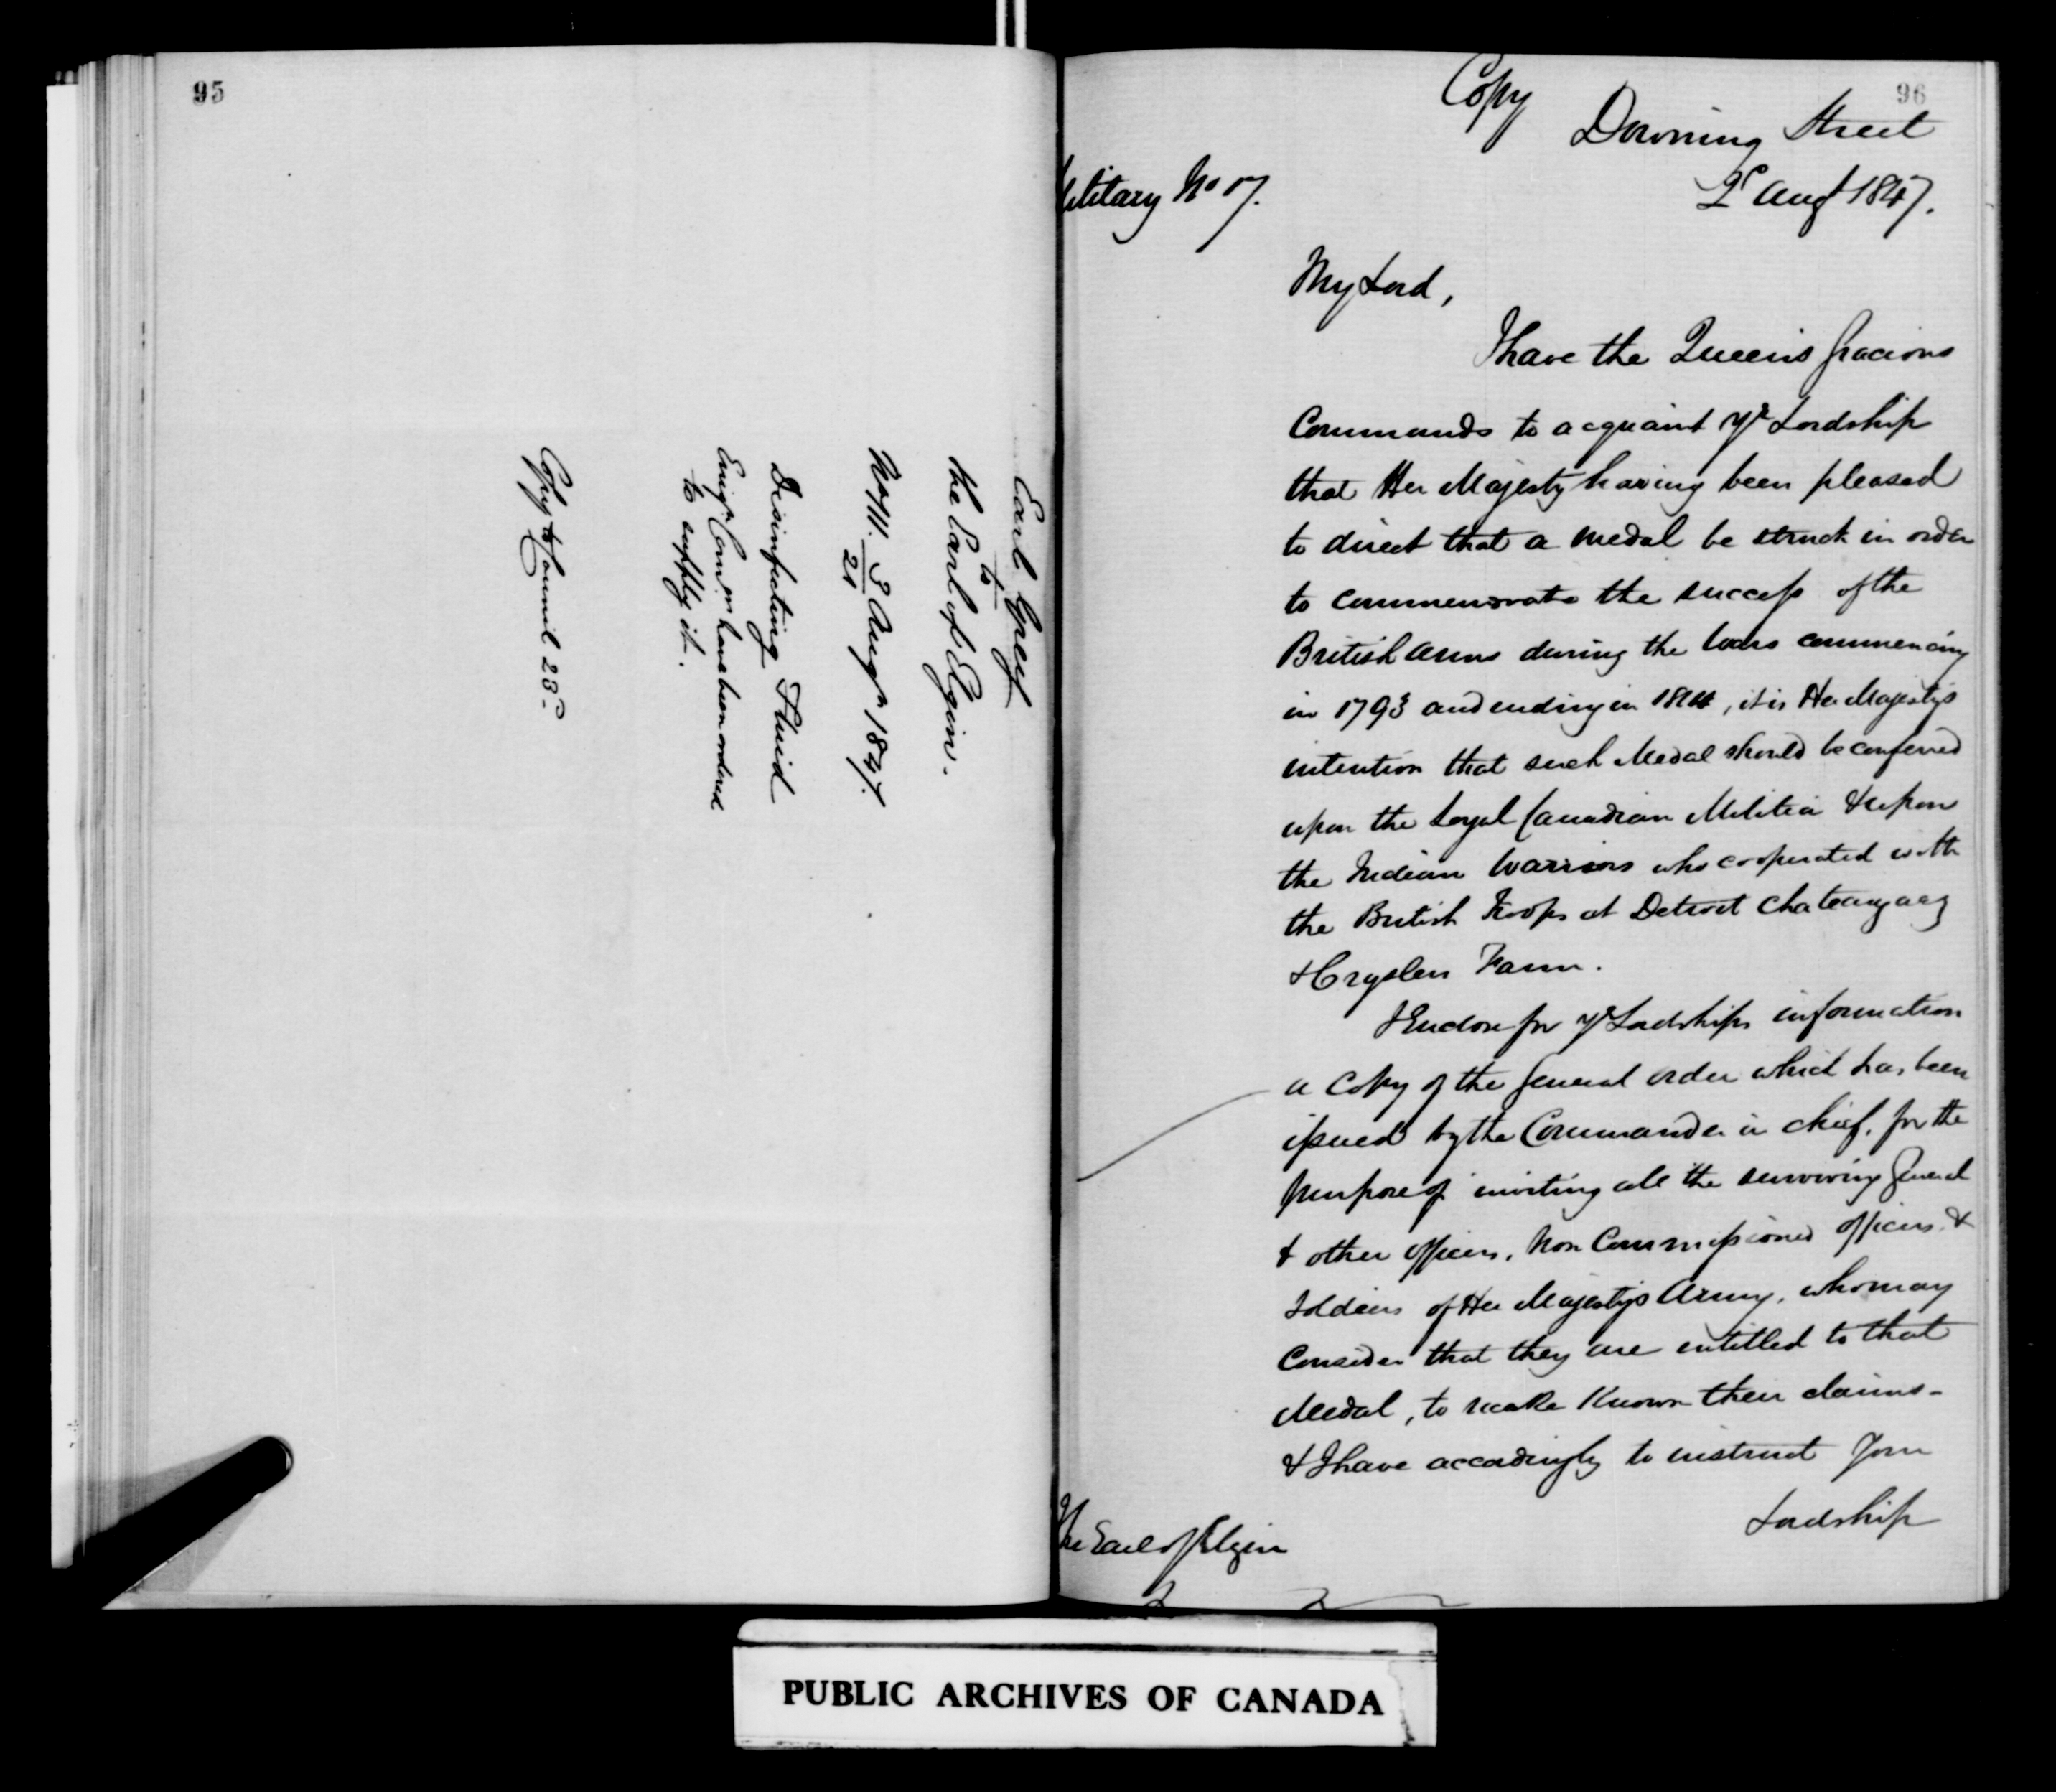 95
Earl Grey
to
the Earl of Elgin.
No 111. 3 Augt 1847.
21
Disinfecting Fluid
Emign Comrs have been ordered
to supply it.
Copy to Council 23d
96
Copy
Downing Street
2d Augt 1847.
Military No 17.
My Lord,
I have the Queen's Gracious
Commands to acquaint Yr Lordship
that Her Majesty having been pleased
to direct that a medal be struck in order
to commemorate the success of the
British Arms during the Wars commencing
in 1793 and ending in 1814, it is Her Majesty's
intention that such Medal should be conferred
upon the Loyal Canadian Militia & upon
the Indian Warriors who cooperated with
the British Troops at Detroit Chateauguay
& Cryslers Farm.
I Enclose for Yr Lordships information
a Copy of the General order which has been
issued by the Commander in Chief, for the
purpose of inviting all the surviving General
& other officers, Non Commissioned officers &
Soldiers of Her Majestys Army, who may
Consider that they are entitled to that
Medal, to make Known their claims -
& I have accordingly to instruct Your
Lordship
The Earl of Elgin
PUBLIC ARCHIVES OF CANADA